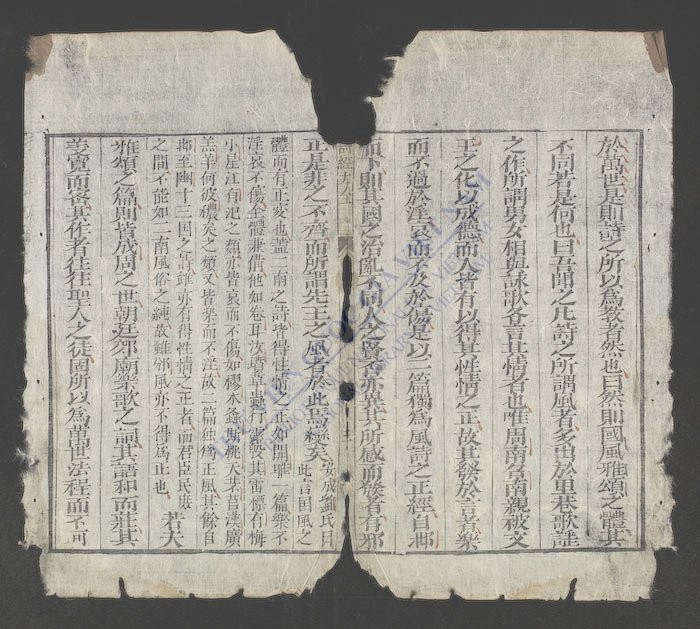 於萬世是則詩之所以為教者然也曰然則國風雅頌之體其
不同若是何也曰吾聞之凡詩之所謂風者多出於里巷歌謠
之作所謂男女相與詠歌各言其情者也惟周南召南親被文
王之化以成德而人皆有以得其性情之正故其發於言者樂
而不過於淫哀而不及於傷是以二篇獨為風詩之正經自邶
而下則其國之治亂不同人之賢否亦異其所感而發者有邪
詩經大全
正是非之不齊而所謂先王之風者於此焉變矣
安成劉氏曰
此言国風之
體而有正变也蓋二南之詩皆得性情之正如関雎一篇樂不
淫哀不傷全體兼偹他如卷耳汝墳草虫行露殷其雷摽有梅
小星江有汜之類亦皆哀而不傷如樛木螽斯桃夭芣苢漢廣
羔羊何彼襛矣之類又皆樂而不淫故二篇独為正風其餘自
邶至豳十三国之詩雖亦有得性情之正者而君臣民庻
之間不能如二南風俗之純故雖邠風亦不得為正也
若夫
雅頌之篇則皆成周之世朝廷郊廟樂歌之詞其語和而莊其
義寛而密其作者往往聖人之徒固所以為萬世法程而不可